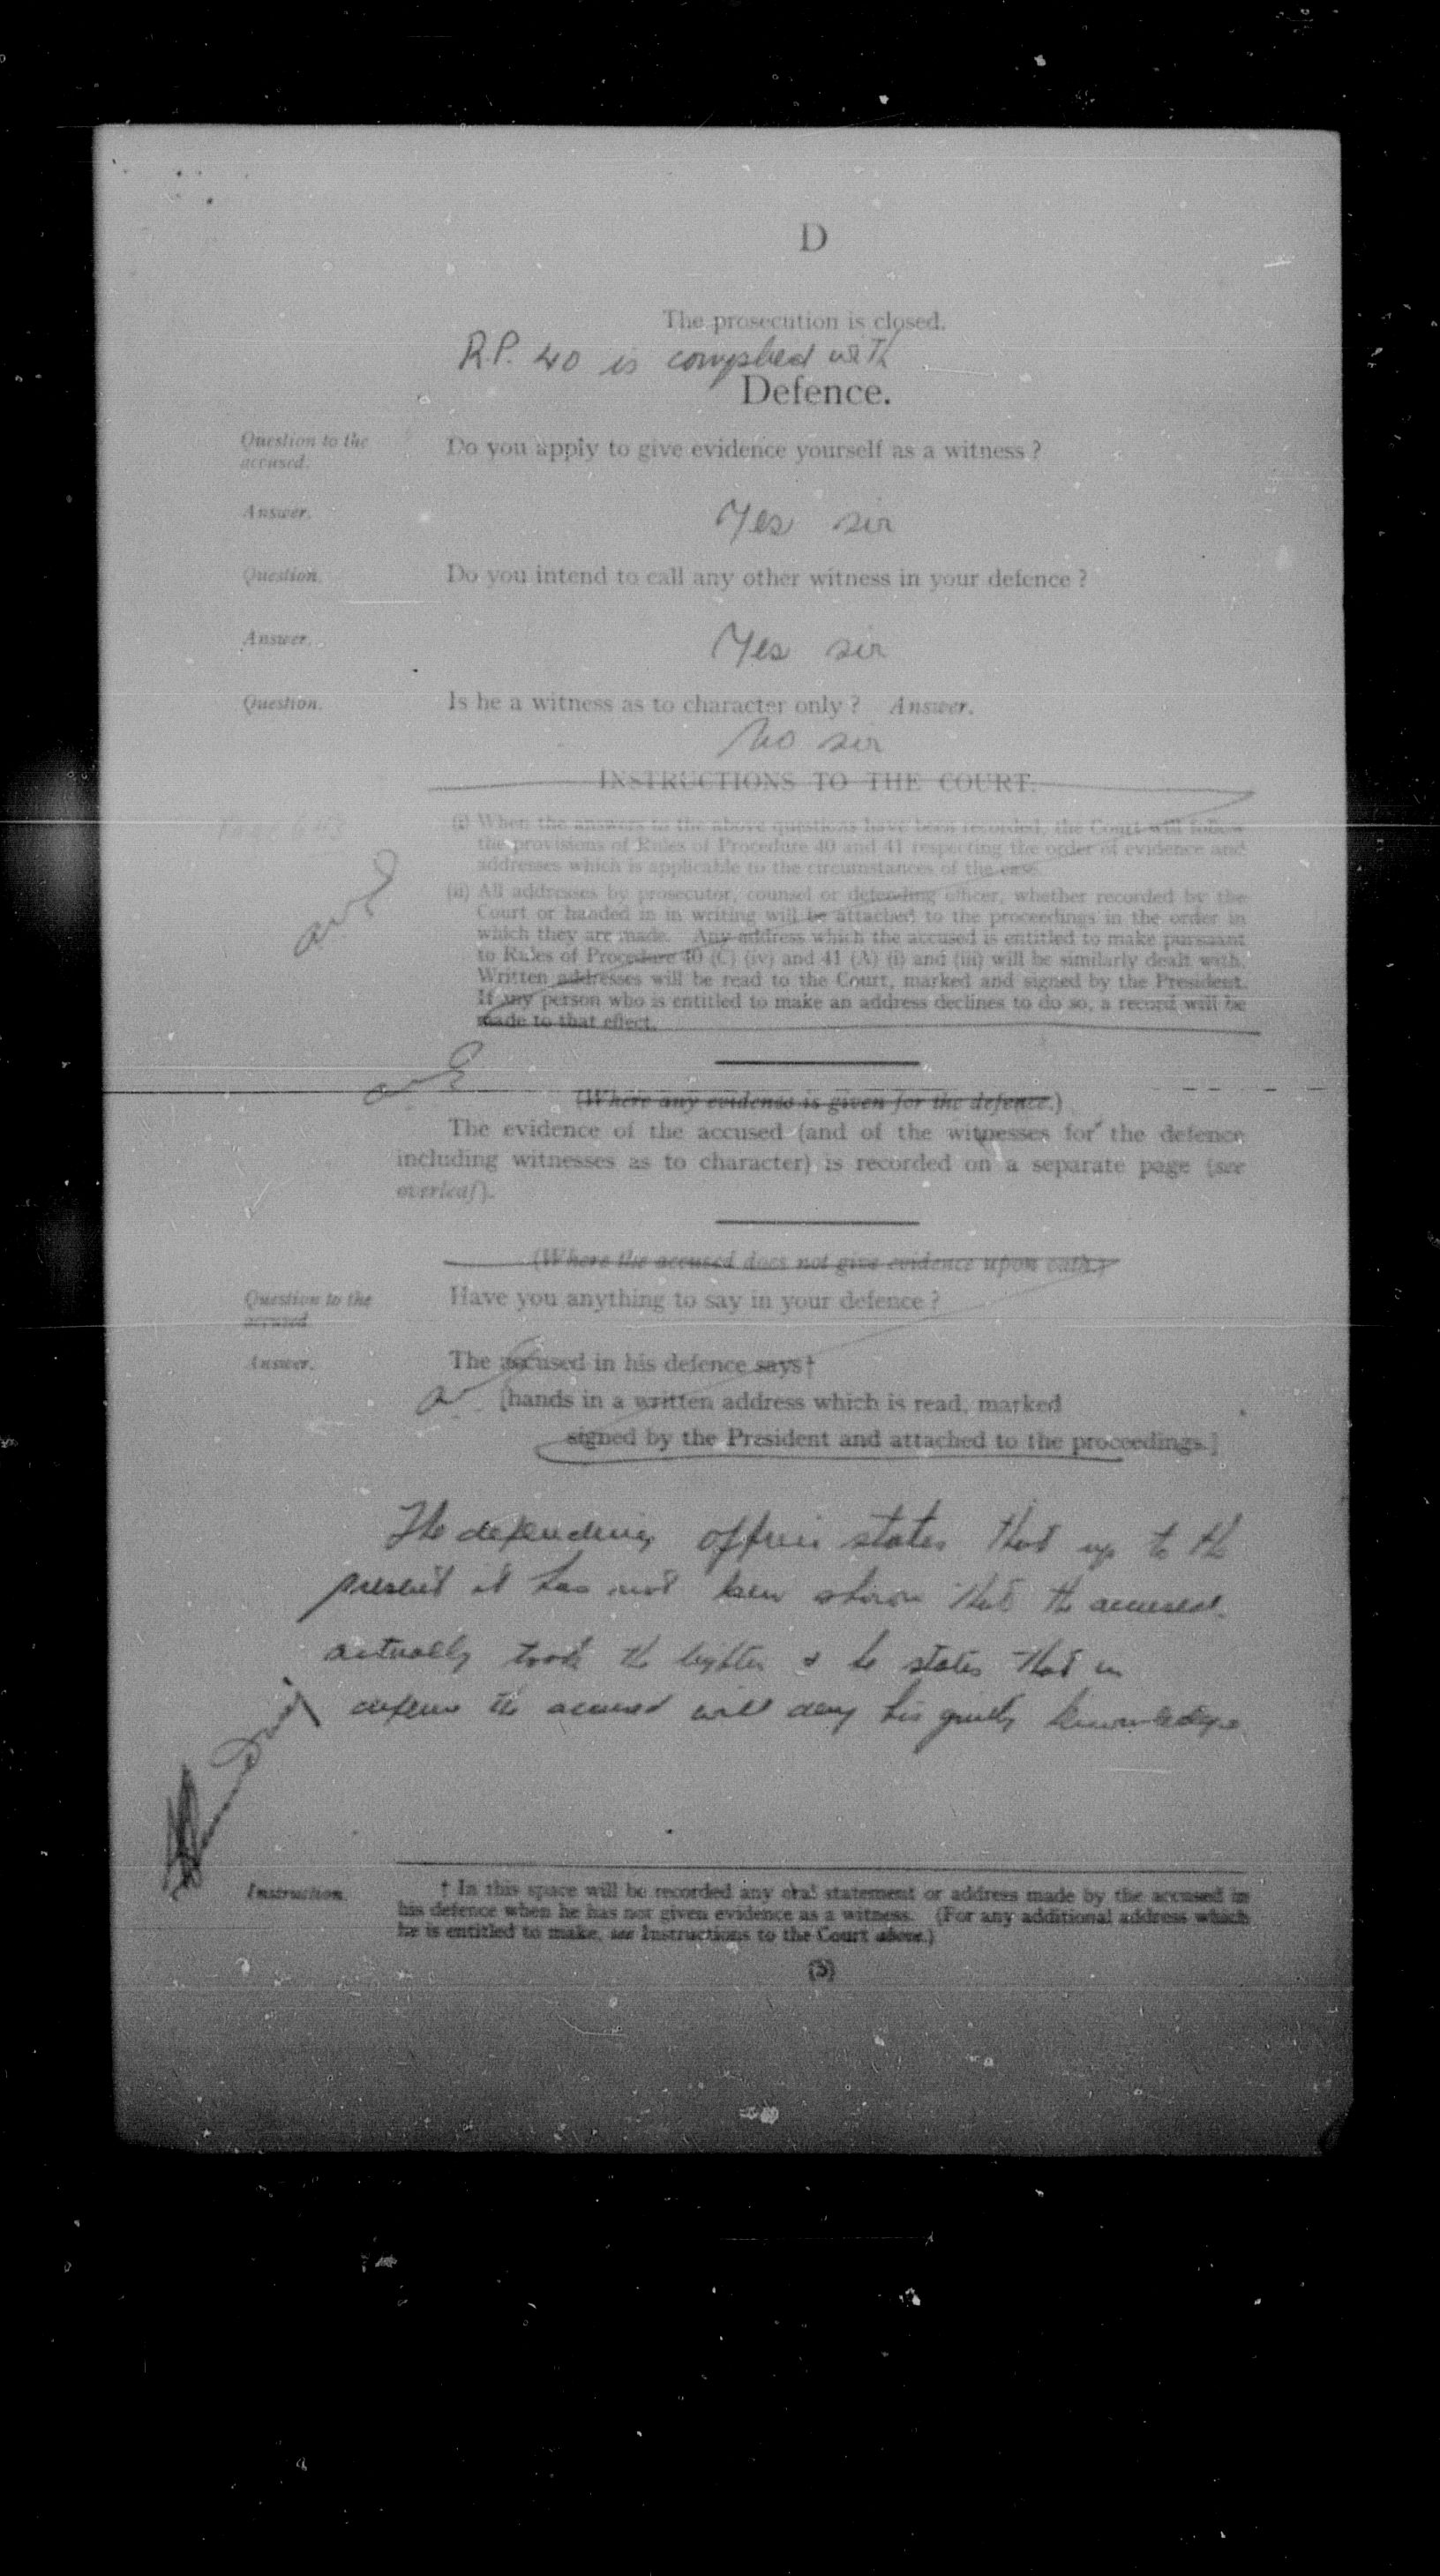 D
The prosecution is closed.
R.P. 40 is complied with
Defence.
Question to the accused.
Do you apply to give evidence yourself as a witness ?
Answer.
Yes sir
Question.
Do you intend to call any other witness in your defence ?
Answer.
Yes sir
Question.
Is he a witness as to character only ? Answer.
No sir
INSTRUCTIONS TO THE COURT.
(i) When the answers to the above questions have been recorded, the Court will follow
the provisions of Rules of Procedure 40 and 41 respecting the order of evidence and
addresses which is applicable to the circumstances of the case.
(ii) All addresses by prosecutor, counsel or defending officer, whether recorded by the
Court or handed in in writing will be attached to the proceedings in the order in
which they are made. Any address which the accused is entitled to make pursuant
to Rules of Procedure 40 (C) (iv) and 41 (A) (i) and (iii) will be similarly dealt with.
Written addresses will be read to the Court, marked and signed by the President.
If any person who is entitled to make an address declines to do so, a record will be
made to that effect.
(Where any evidence is given for the defence.)
The evidence of the accused (and of the witnesses for the defence
including witnesses as to character) is recorded on a separate page (see
overleaf).
(Where the accused does not give evidence upon oath.)
Question to the accused
Have you anything to say in your defence ?
Answer.
The accused in his defence says†
[hands in a written address which is read, marked
signed by the President and attached to the proceedings.]
The defending officer states that up to the
present it has not been shown that the accused
actually took the lighter & he states that in
defence the accused will deny his guilty knowledge
Instruction.
† In this space will be recorded any oral statement or address made by the accused in
his defence when he has not given evidence as a witness. (For any additional address which
he is entitled to make, see Instructions to the Court above.)
(5)